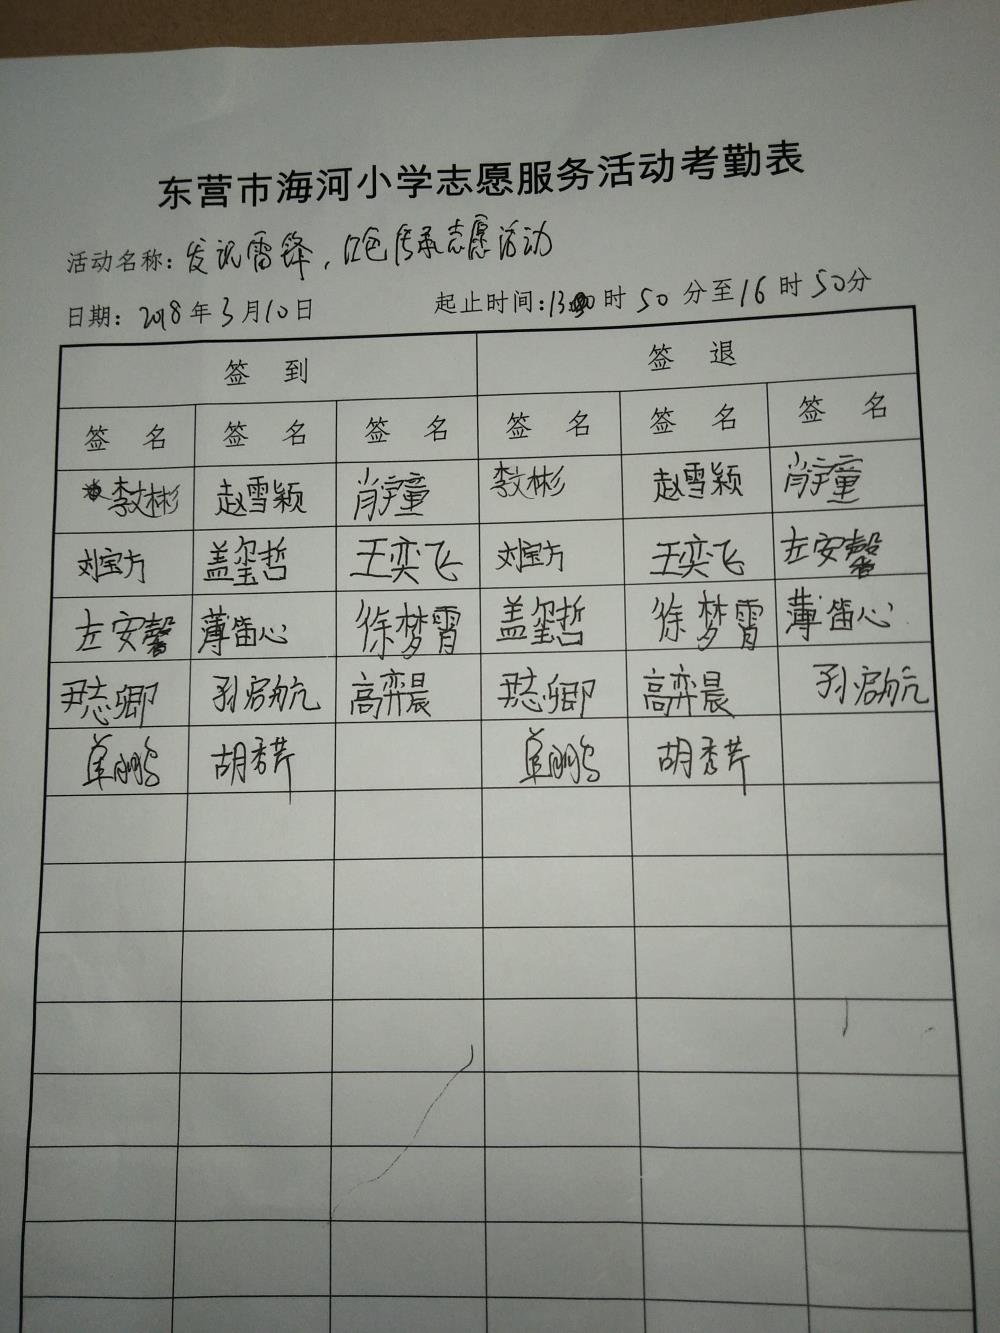 东营市海河小学志愿服务活动考勤表
活动名称：发现雷锋，红色传承志愿活动
日期：2018年3月10日 起止时间：13时50分至16时50分
签 到 签 退
签 名 签 名 签 名 签 名 签 名 签 名
李文彬 赵雪颖 肖宇童 李文彬 赵雪颖 肖宇童
刘宝方 盖玺哲 王奕飞 刘宝方 王奕飞 左安馨
左安馨 薄笛心 徐梦霄 盖玺哲 徐梦霄 薄笛心
尹志卿 孙启航 高弈晨 尹志卿 高弈晨 孙启航
单鹏 胡秀芹 单鹏 胡秀芹